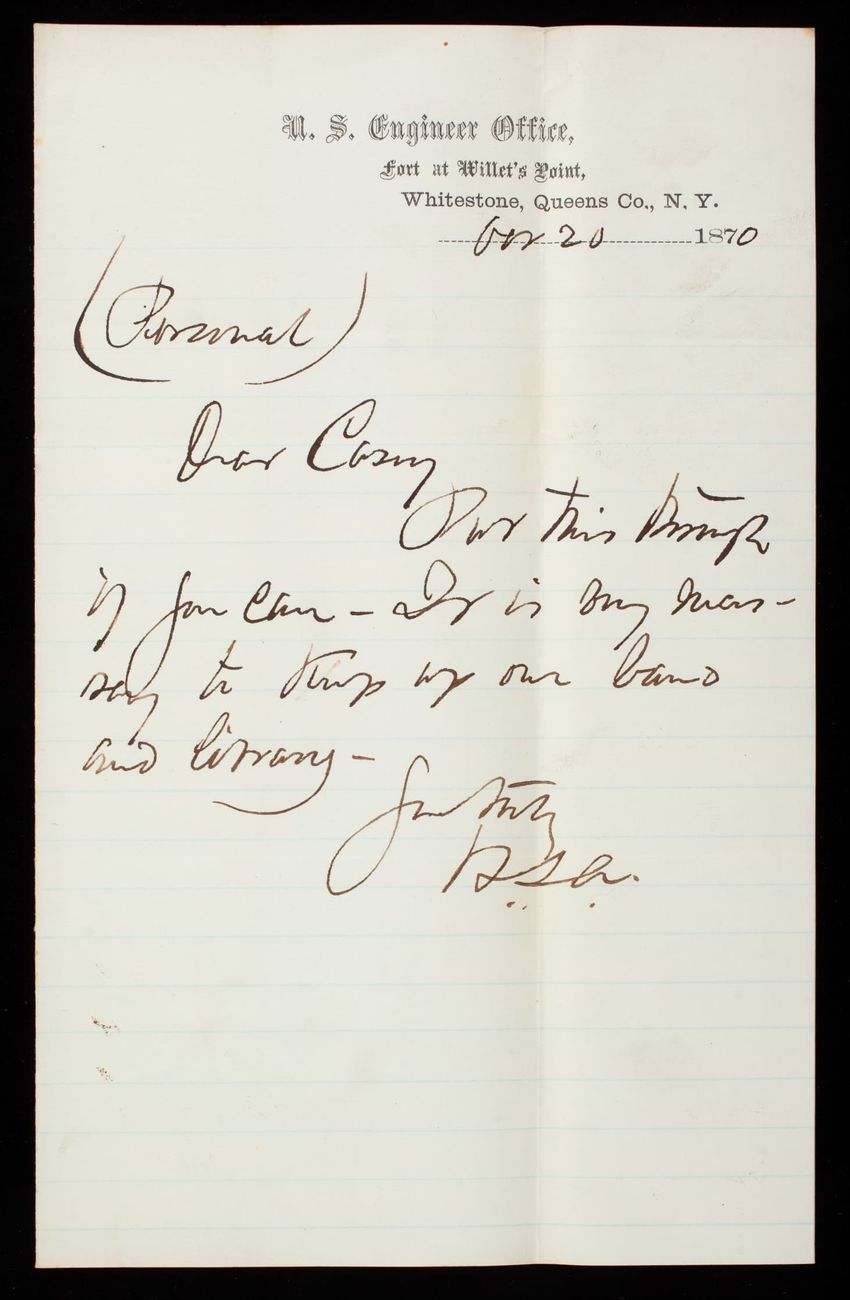 U. S. Engineer Office,
Fort at Willet's Point,
Whitestone, Queens Co., N. Y.
Oct 20 1870
(Personal)
Dear Casey
Put this through
if you can - It is my neces-
sary to keep up our band
and library -
Yours truly